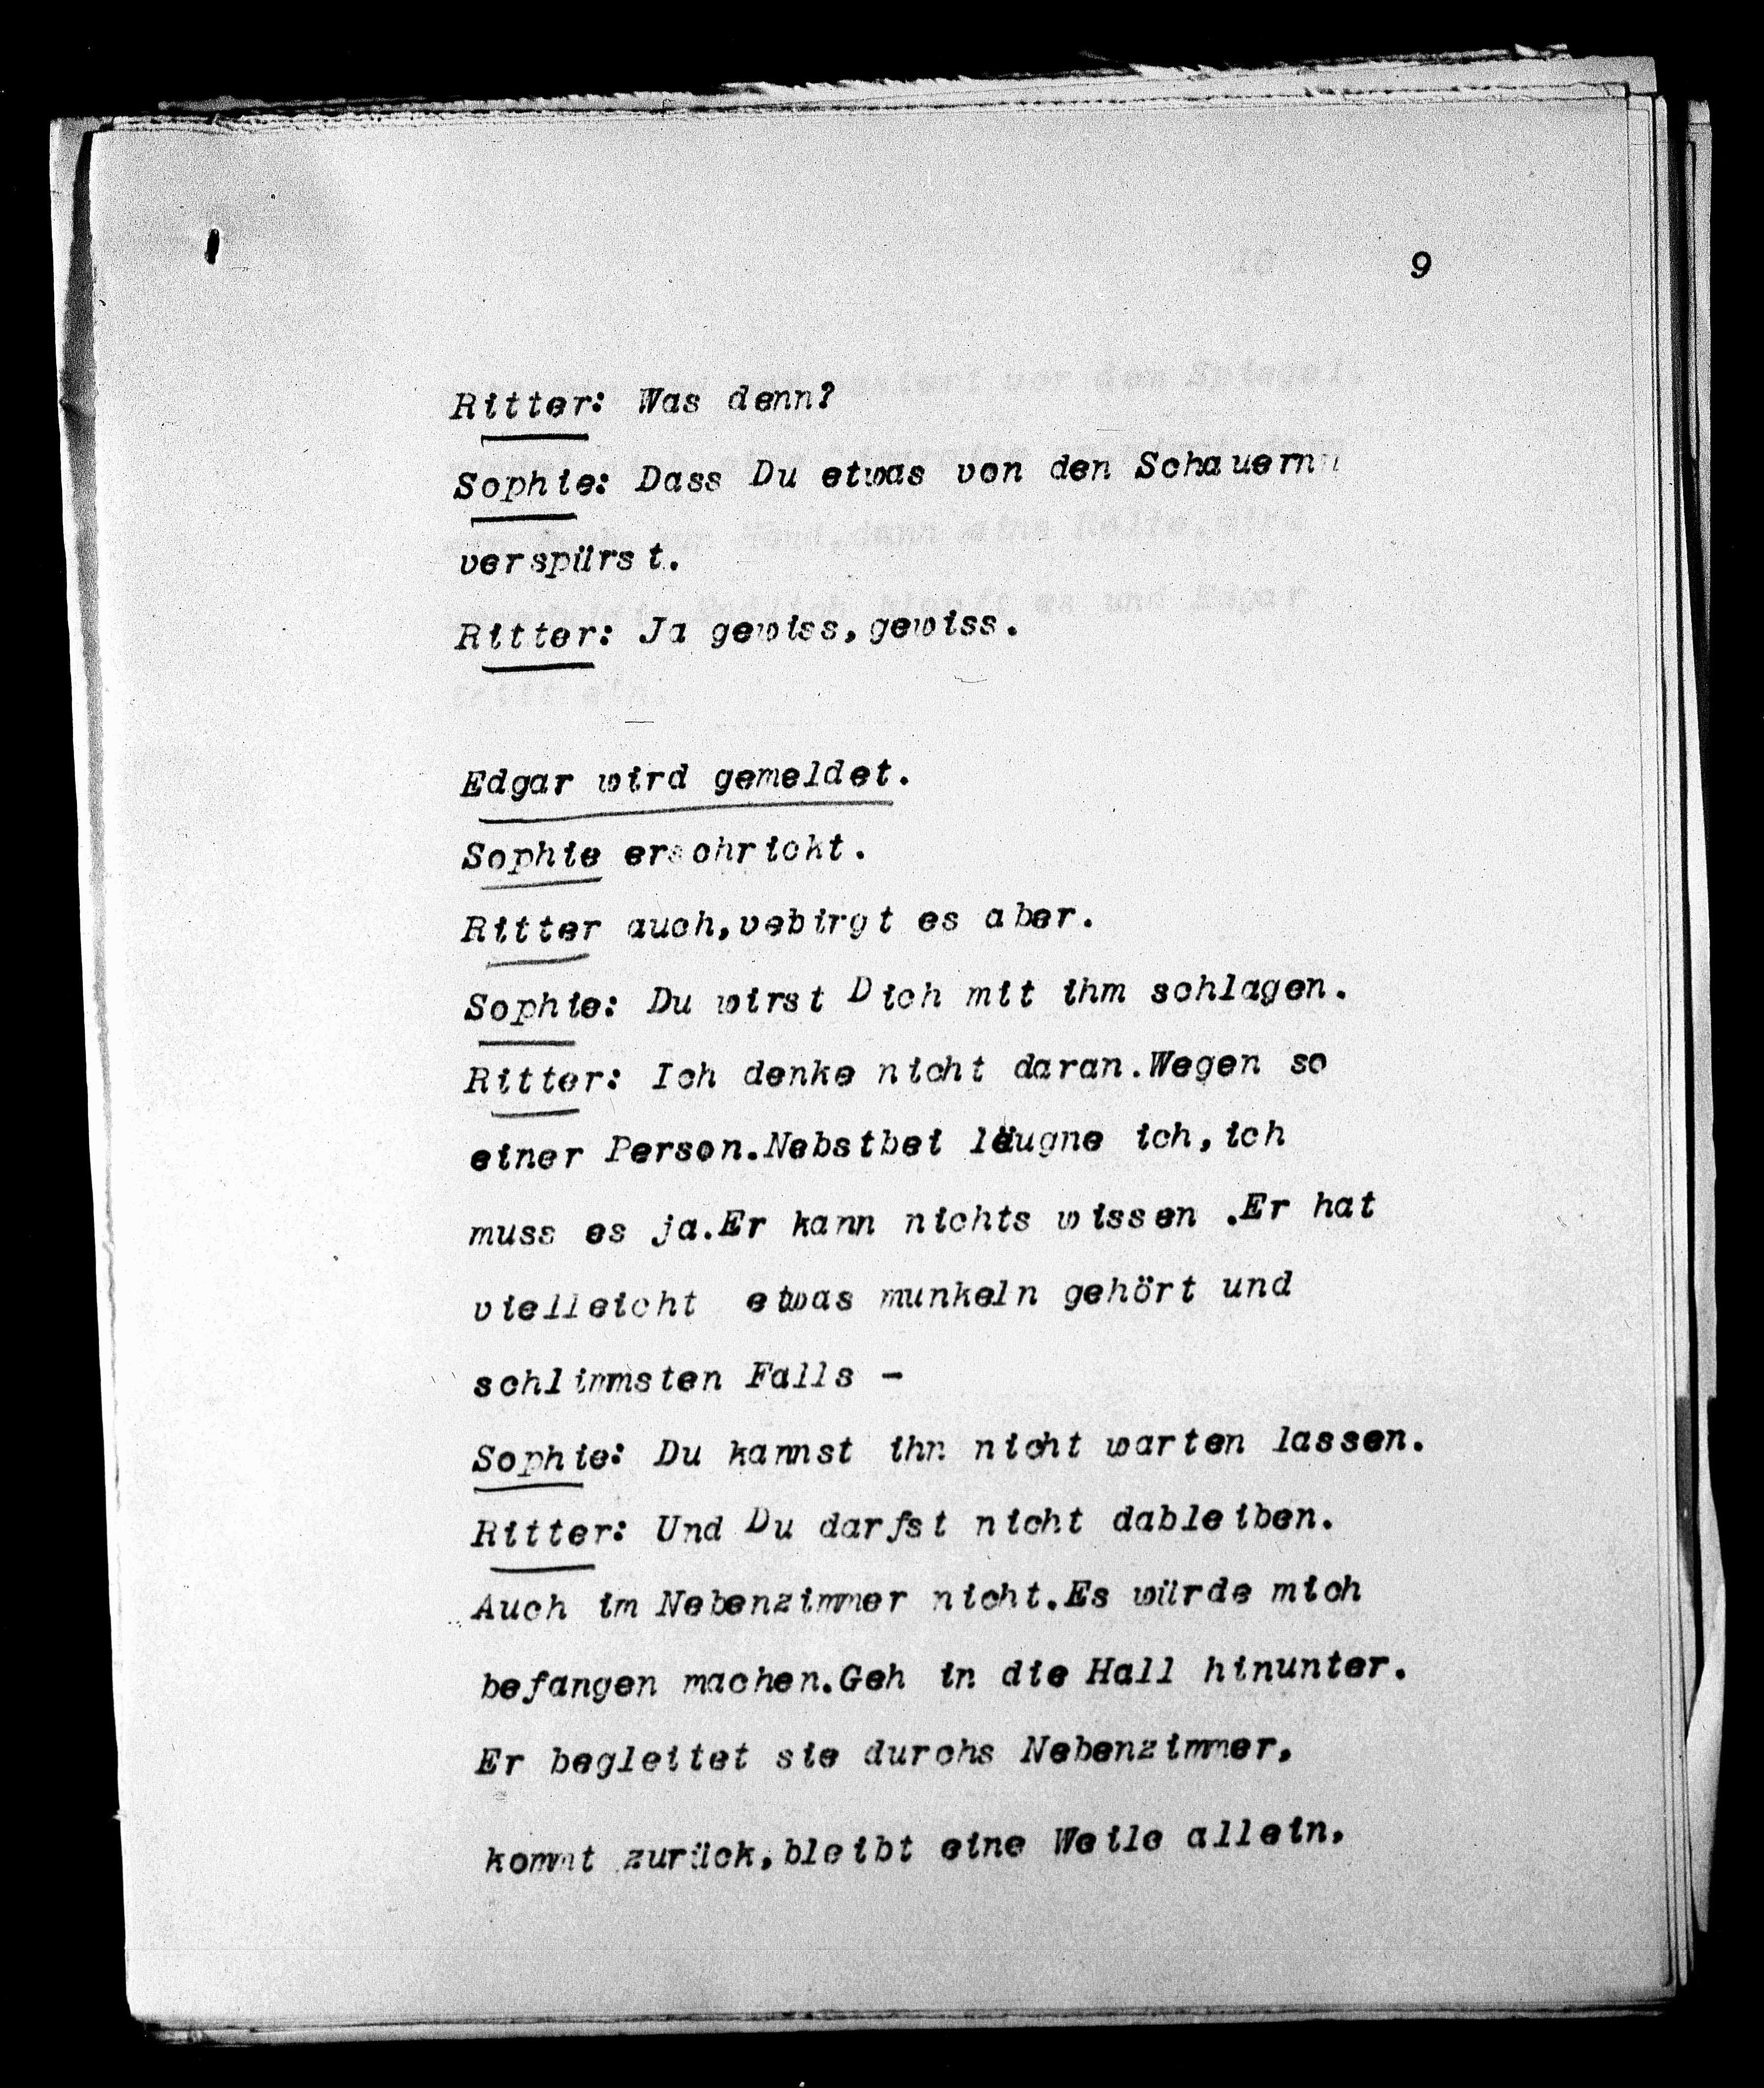 9
Ritter: Was denn?
Sophie: Dass Du etwas von den Schauern
verspürst.
Ritter: Ja gewiss,gewiss.
Edgar wird gemeldet.
Sophie erschrickt.
Ritter auch,vebirgt es aber.
Sophie: Du wirst Dich mit ihm schlagen.
Ritter: Ich denke nicht daran.Wegen so
einer Person.Nebstbei läugne ich,ich
muss es ja.Er kann nichts wissen .Er hat
vielleicht etwas munkeln gehört und
schlimmsten Falls -
Sophie: Du kannst ihn nicht warten lassen.
Ritter: Und Du darfst nicht dableiben.
Auch im Nebenzimmer nicht.Es würde mich
befangen machen.Geh in die Hall hinunter.
Er begleitet sie durchs Nebenzimmer,
kommt zurück,bleibt eine Weile allein,